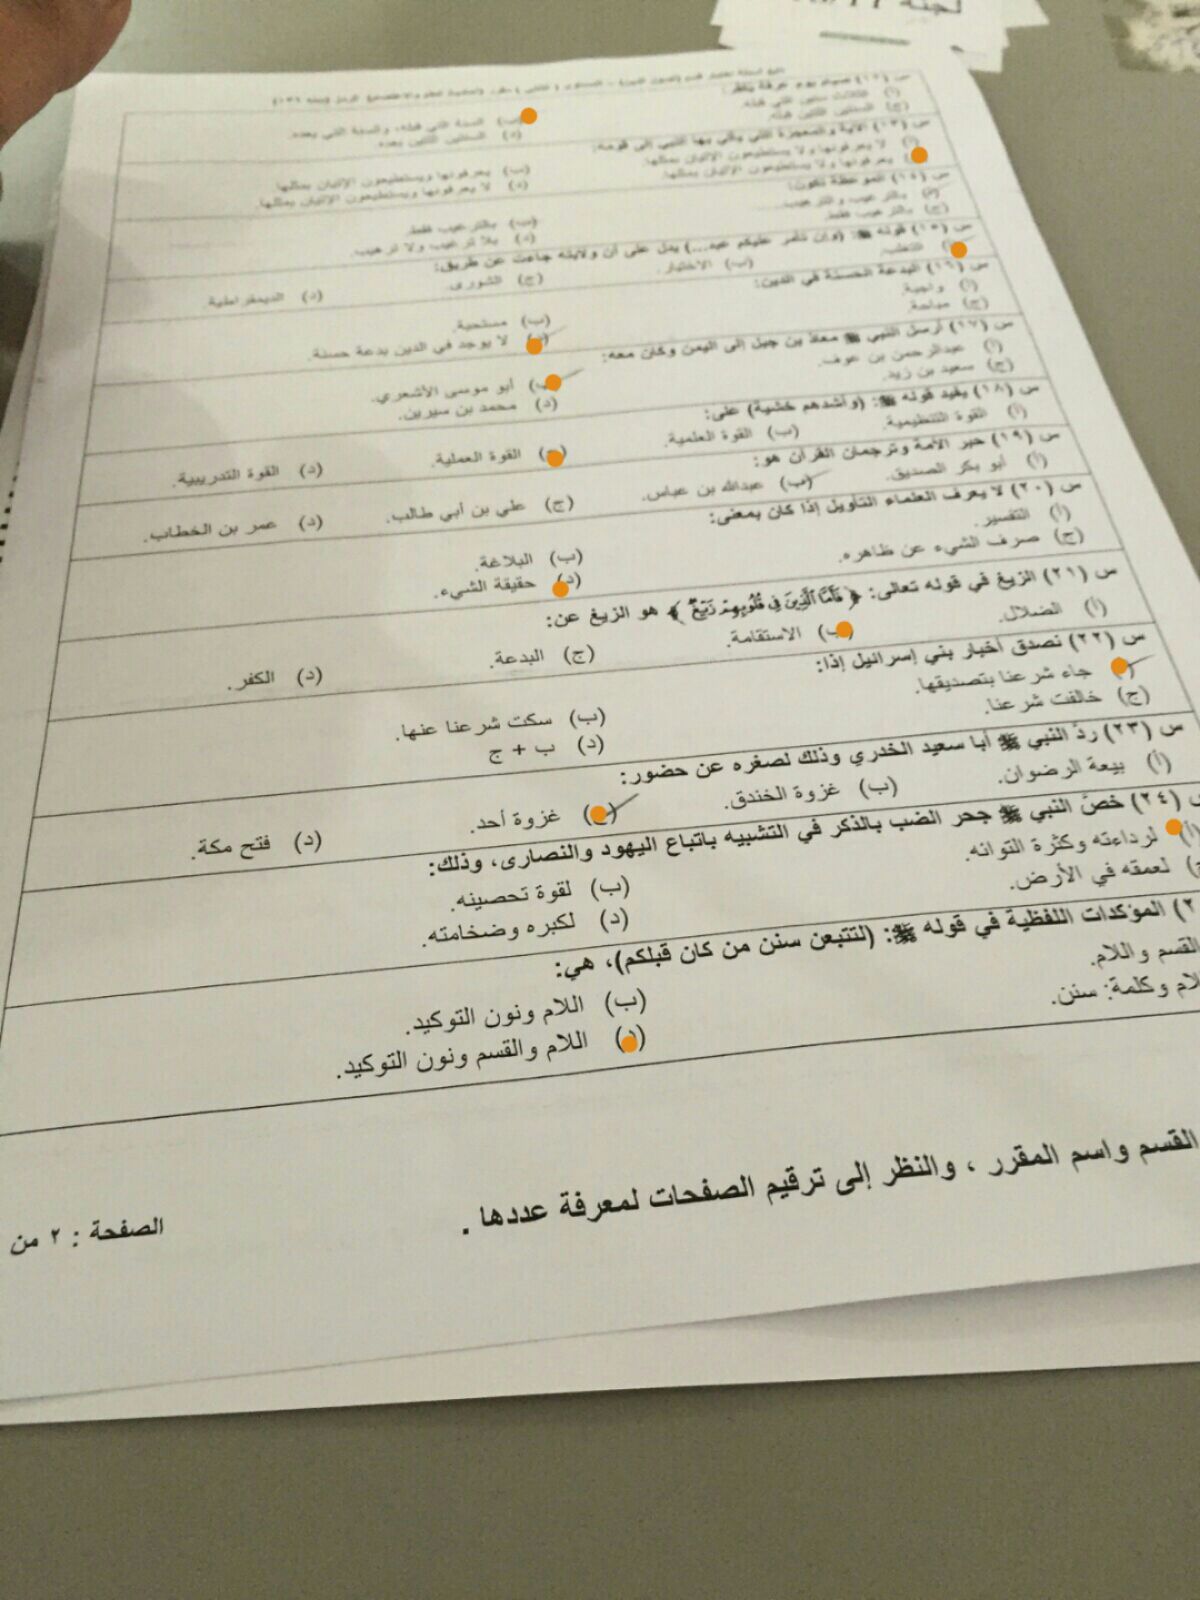 لجنة
س (١٢) صيام يوم عرفة يكفر:
(أ) الثلاث سنين التي قبله.
(ب) السنة التي قبله، والسنة التي بعده.
(ج) السنتين اللتين قبله.
(د) السنتين اللتين بعده.
س (١٣) الآية والمعجزة التي يأتي بها النبي إلى قومه:
(أ) لا يعرفونها ولا يستطيعون الإتيان بمثلها.
(ب) يعرفونها ويستطيعون الإتيان بمثلها.
يعرفونها ولا يستطيعون الإتيان بمثلها.
(د) لا يعرفونها ويستطيعون الإتيان بمثلها.
الموعظة تكون:
(أ) بالترغيب والترهيب.
(ب) بالترغيب فقط.
(ج) بالترهيب فقط.
(د) بلا ترغيب ولا ترهيب.
س (١٥) قوله ﷺ: (وإن تأمر عليكم عبد...) يدل على أن ولايته جاءت عن طريق:
التغلب. (ب) الاختيار. (ج) الشورى. (د) الديمقراطية.
س (١٦) البدعة الحسنة في الدين:
(أ) واجبة.
(ب) مستحبة.
(ج) مباحة.
(د) لا يوجد في الدين بدعة حسنة.
س (١٧) أرسل النبي ﷺ معاذ بن جبل إلى اليمن وكان معه:
(أ) عبدالرحمن بن عوف.
(ب) أبو موسى الأشعري.
(ج) سعيد بن زيد.
(د) محمد بن سيرين.
س (١٨) يفيد قوله ﷺ: (وأشدهم خشية) على:
(أ) القوة التنظيمية. (ب) القوة العلمية. (ج) القوة العملية. (د) القوة التدريبية.
س (١٩) حبر الأمة وترجمان القرآن هو:
(أ) أبو بكر الصديق. (ب) عبدالله بن عباس. (ج) علي بن أبي طالب. (د) عمر بن الخطاب.
س (٢٠) لا يعرف العلماء التأويل إذا كان بمعنى:
(أ) التفسير.
(ب) البلاغة.
(ج) صرف الشيء عن ظاهره.
(د) حقيقة الشيء.
س (٢١) الزيغ في قوله تعالى: ﴿فَأَمَّا الَّذِينَ فِي قُلُوبِهِمْ زَيْغٌ﴾ هو الزيغ عن:
(أ) الضلال. (ب) الاستقامة. (ج) البدعة. (د) الكفر.
س (٢٢) نصدق أخبار بني إسرائيل إذا:
(أ) جاء شرعنا بتصديقها.
(ب) سكت شرعنا عنها.
(ج) خالفت شرعنا.
(د) ب + ج
س (٢٣) ردّ النبي ﷺ أبا سعيد الخدري وذلك لصغره عن حضور:
(أ) بيعة الرضوان. (ب) غزوة الخندق. (ج) غزوة أحد. (د) فتح مكة.
س (٢٤) خصّ النبي ﷺ جحر الضب بالذكر في التشبيه باتباع اليهود والنصارى، وذلك:
(أ) لرداءته وكثرة التوائه.
(ب) لقوة تحصينه.
لعمقه في الأرض.
(د) لكبره وضخامته.
٢) المؤكدات اللفظية في قوله ﷺ: (لتتبعن سنن من كان قبلكم)، هي:
القسم واللام.
(ب) اللام ونون التوكيد.
لام وكلمة: سنن.
(د) اللام والقسم ونون التوكيد.
القسم واسم المقرر ، والنظر إلى ترقيم الصفحات لمعرفة عددها .
الصفحة : ٢ من